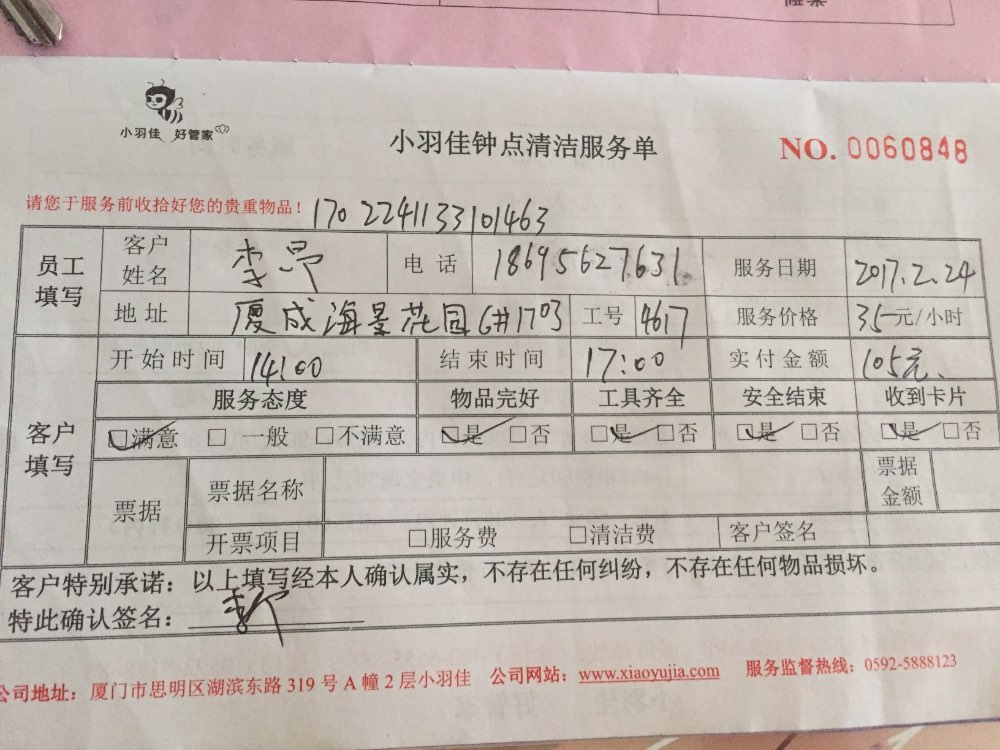 小羽佳 好管家
小羽佳钟点清洁服务单
NO. 0060848
请您于服务前收拾好您的贵重物品！ 1702241133101463
员工填写 客户姓名 李 电话 18695627631 服务日期 2017.2.24
地址 厦成海景花园6#1703 工号 4617 服务价格 35元/小时
客户填写 开始时间 14:00 结束时间 17:00 实付金额 105元
服务态度 物品完好 工具齐全 安全结束 收到卡片
☑满意 □一般 □不满意 ☑是 □否 ☑是 □否 ☑是 □否 ☑是 □否
票据 票据名称 票据金额
开票项目 □服务费 □清洁费 客户签名
客户特别承诺：以上填写经本人确认属实，不存在任何纠纷，不存在任何物品损坏。
特此确认签名：
公司地址：厦门市思明区湖滨东路 319 号 A 幢 2 层小羽佳 公司网站：www.xiaoyujia.com 服务监督热线：0592-5888123